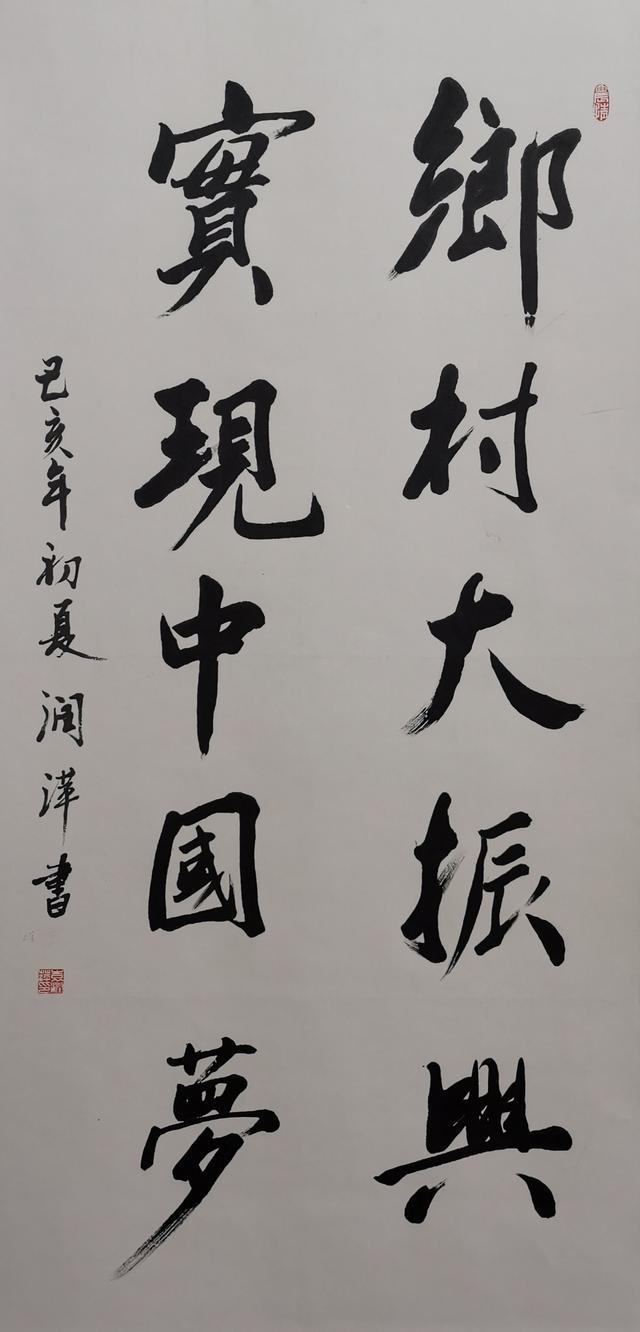 鄉村大振興
實現中國夢
己亥年初夏润萍書